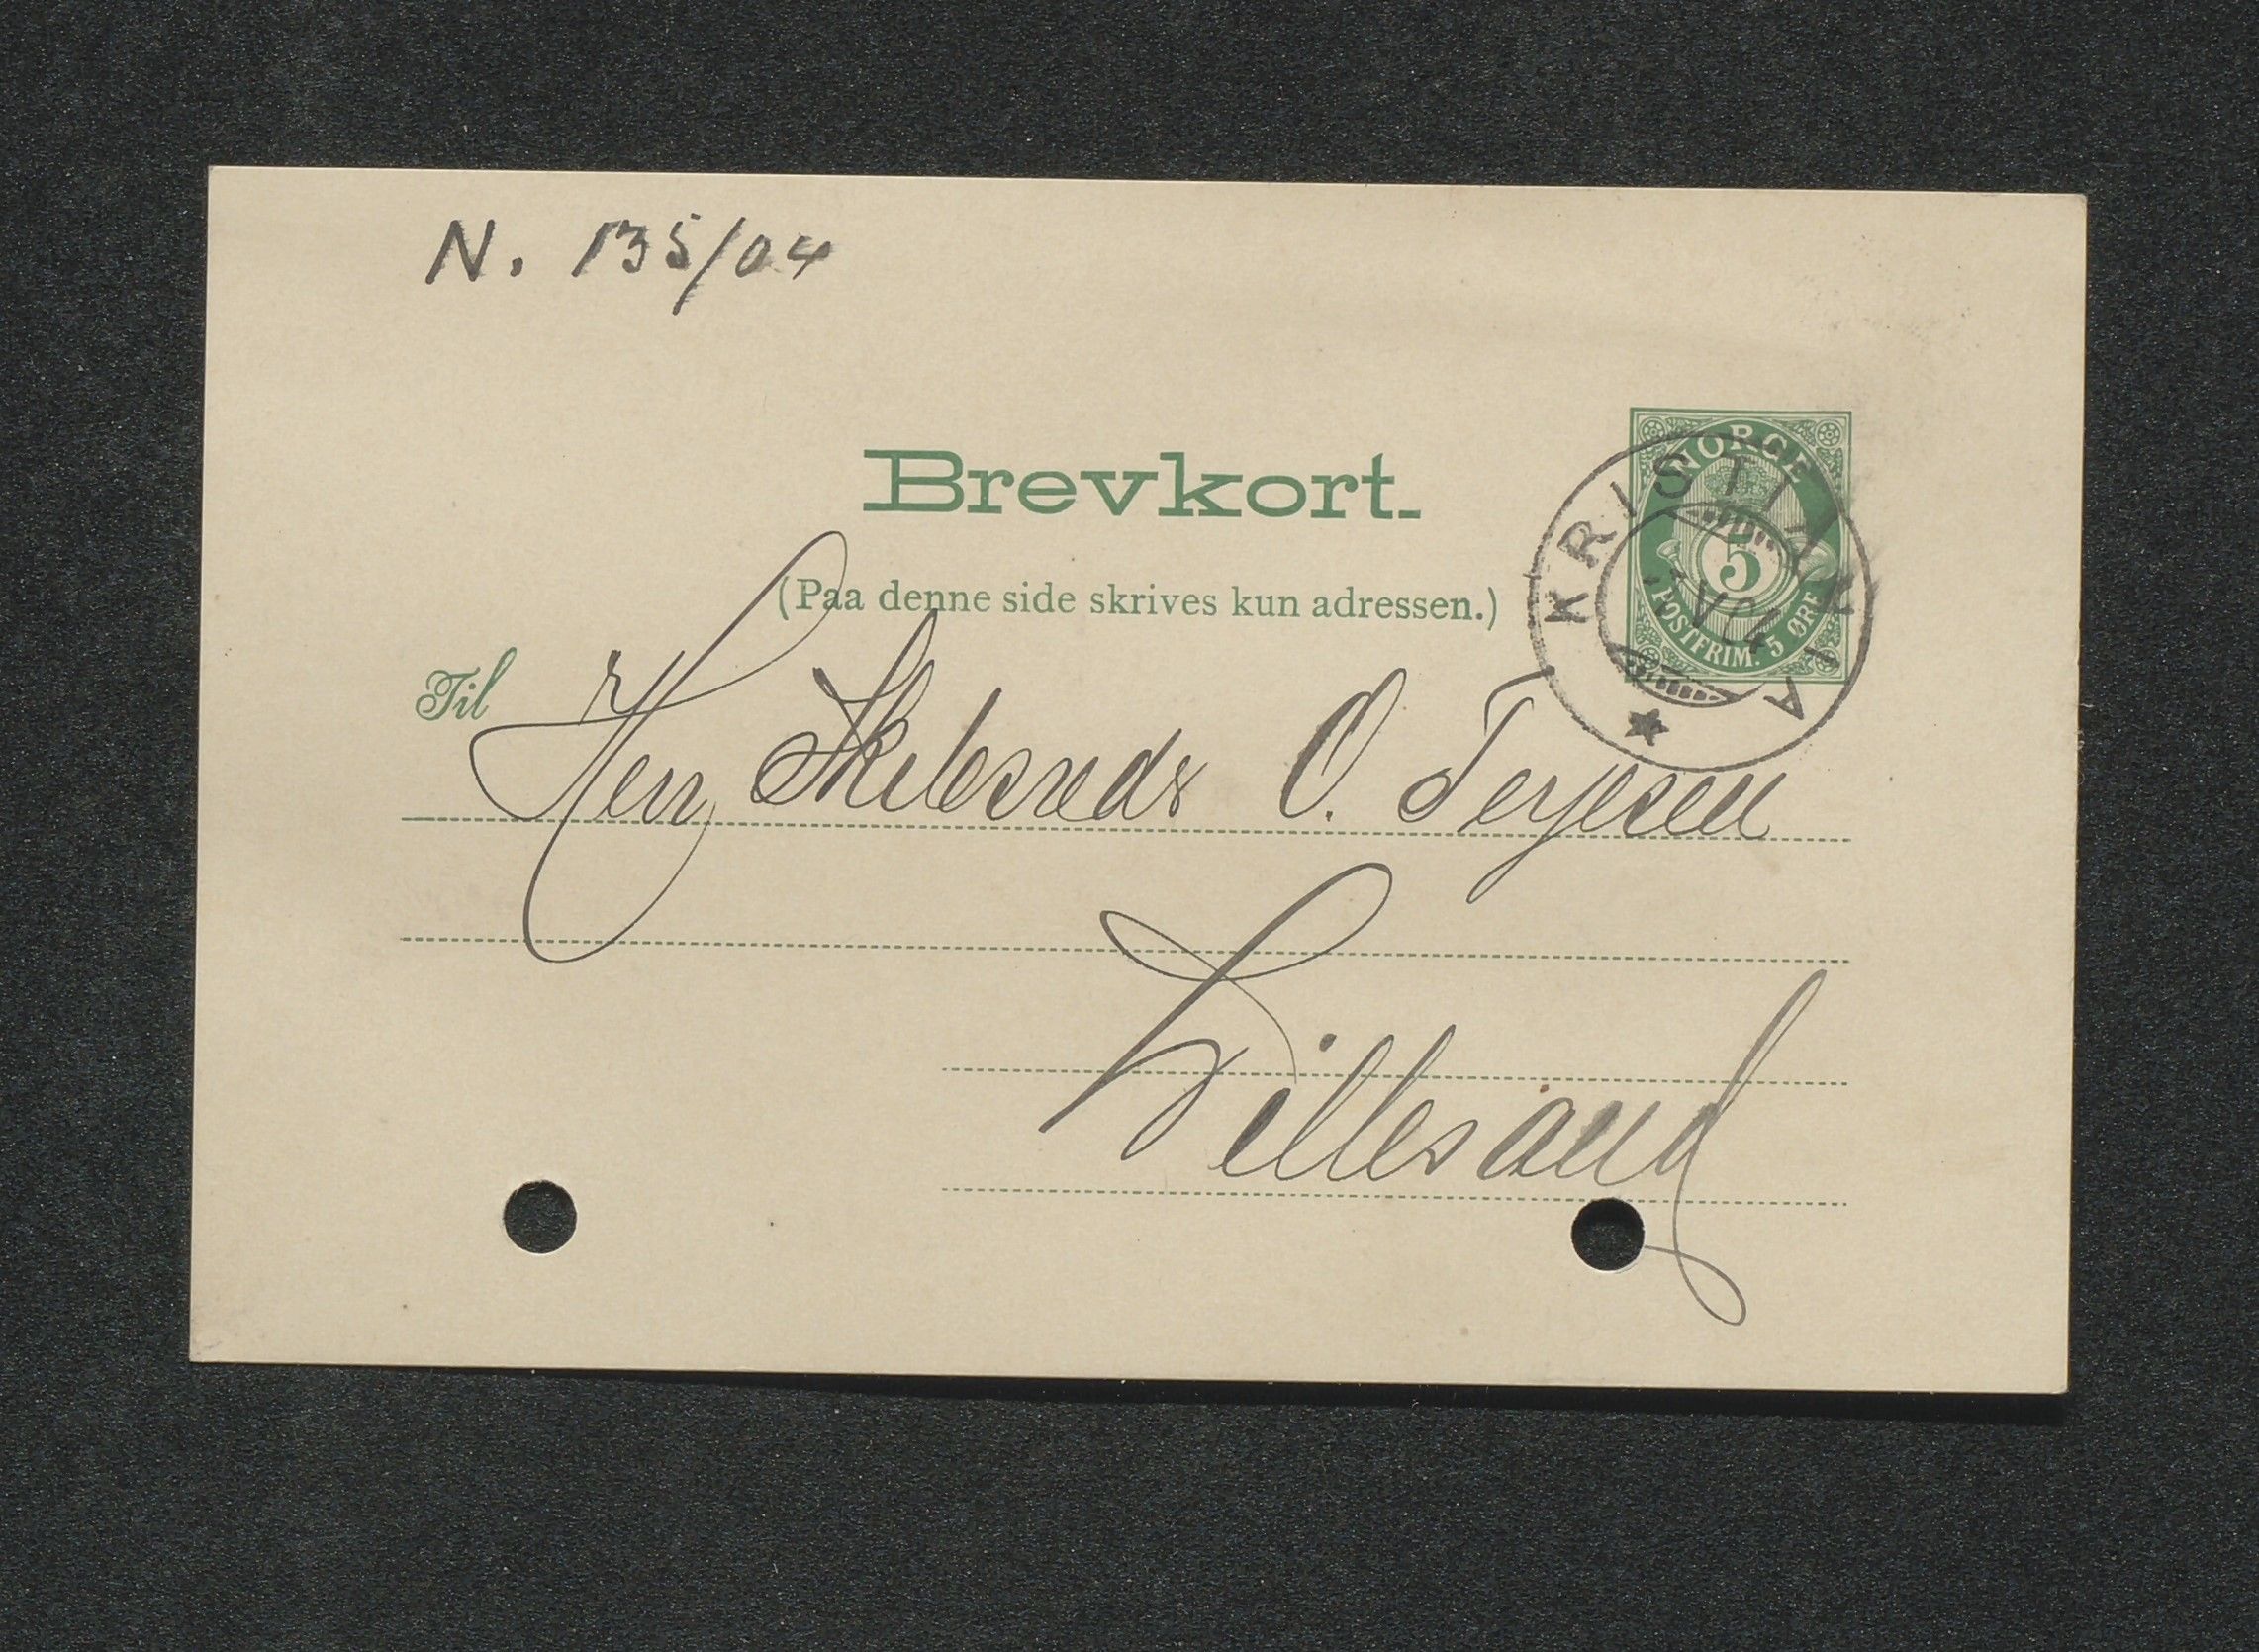 N. 135/04
Brevkort.
(Paa denne side skrives kun adressen.)
NORGE
5
POSTFRIM. 5 ØRE
KRISTIANIA
Til
Herr Skibsreder O. Terjesen
Lillesand